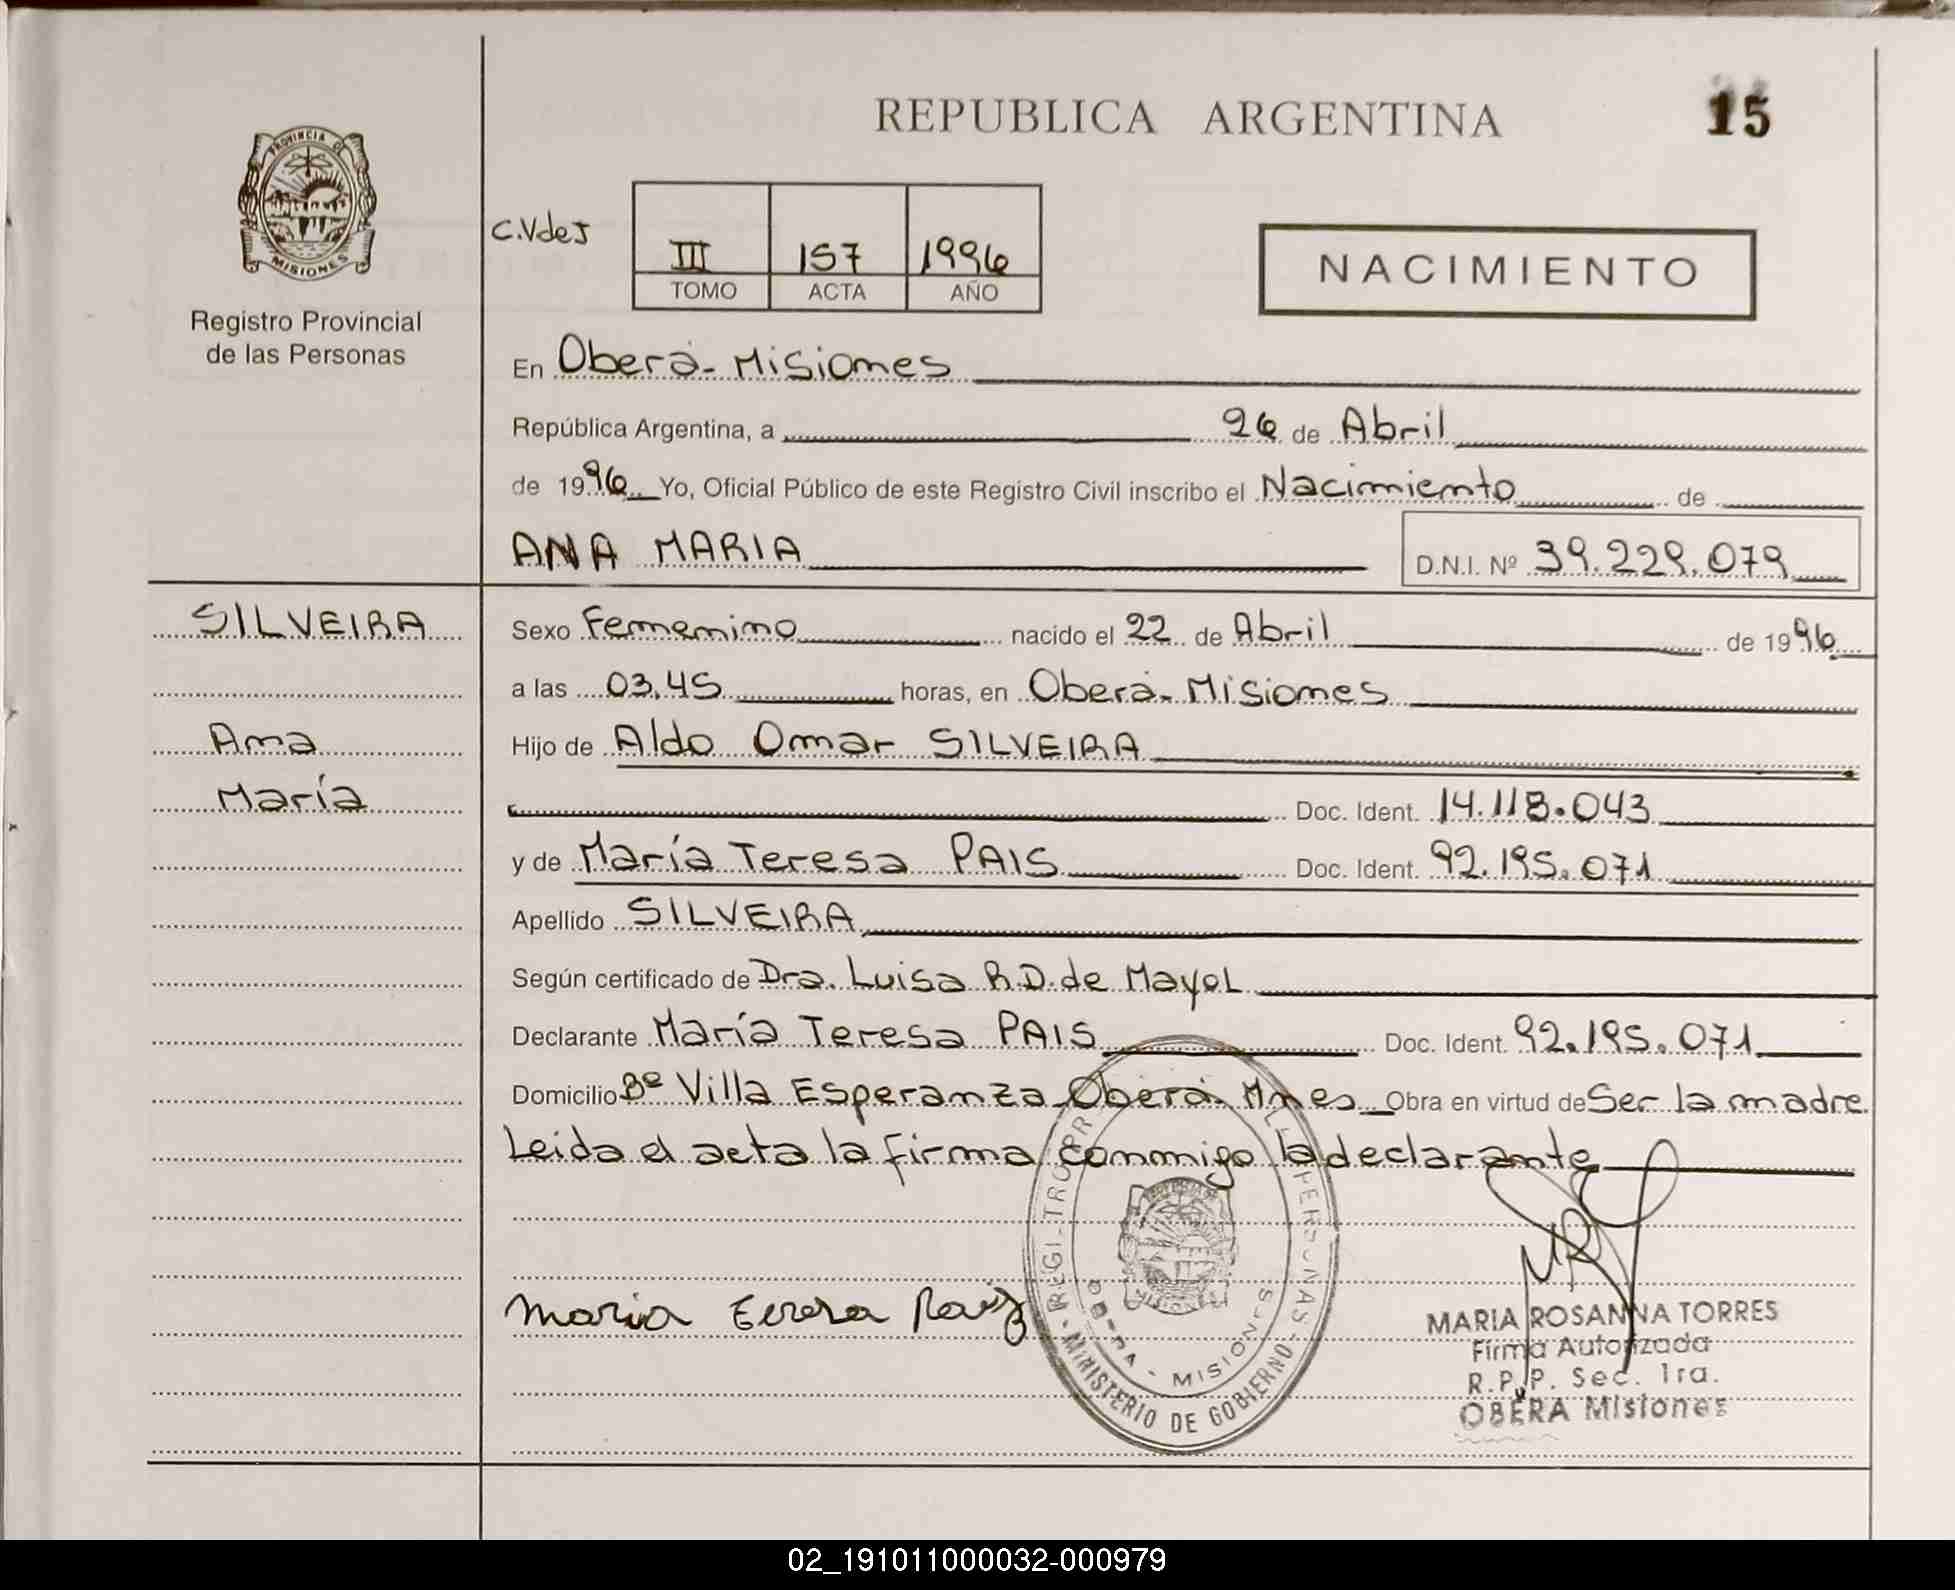 REPUBLICA ARGENTINA
15
PROVINCIA DE
MISIONES
Registro Provincial
de las Personas
C.VdeJ
III 157 1996
TOMO ACTA AÑO
NACIMIENTO
En Oberá - Misiones
República Argentina, a 26 de Abril
de 1996 Yo, Oficial Público de este Registro Civil inscribo el Nacimiento de
ANA MARIA D.N.I. Nº 39.229.079
SILVEIRA
Ana
María
Sexo Femenino nacido el 22 de Abril de 1996
a las 03.45 horas, en Oberá - Misiones
Hijo de Aldo Omar SILVEIRA
Doc. Ident. 14.118.043
y de María Teresa PAIS Doc. Ident. 92.195.071
Apellido SILVEIRA
Según certificado de Dra. Luisa R.D. de Mayol
Declarante María Teresa PAIS Doc. Ident. 92.195.071
Domicilio Bº Villa Esperanza Oberá - Mnes Obra en virtud de Ser la madre
Leida el acta la firma conmigo la declarante
Maria Teresa
MINISTERIO DE GOBIERNO
MISIONES
MARIA ROSANNA TORRES
Firma Autorizada
R.P.P. Sec. 1ra.
OBERA Misiones
02_191011000032-000979